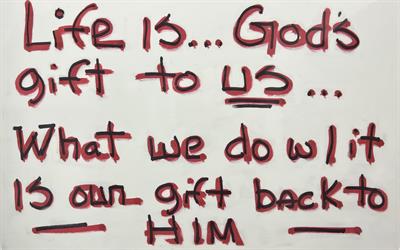 Life is... God's
gift to us...
What we do w/ it
is our gift back to
HIM